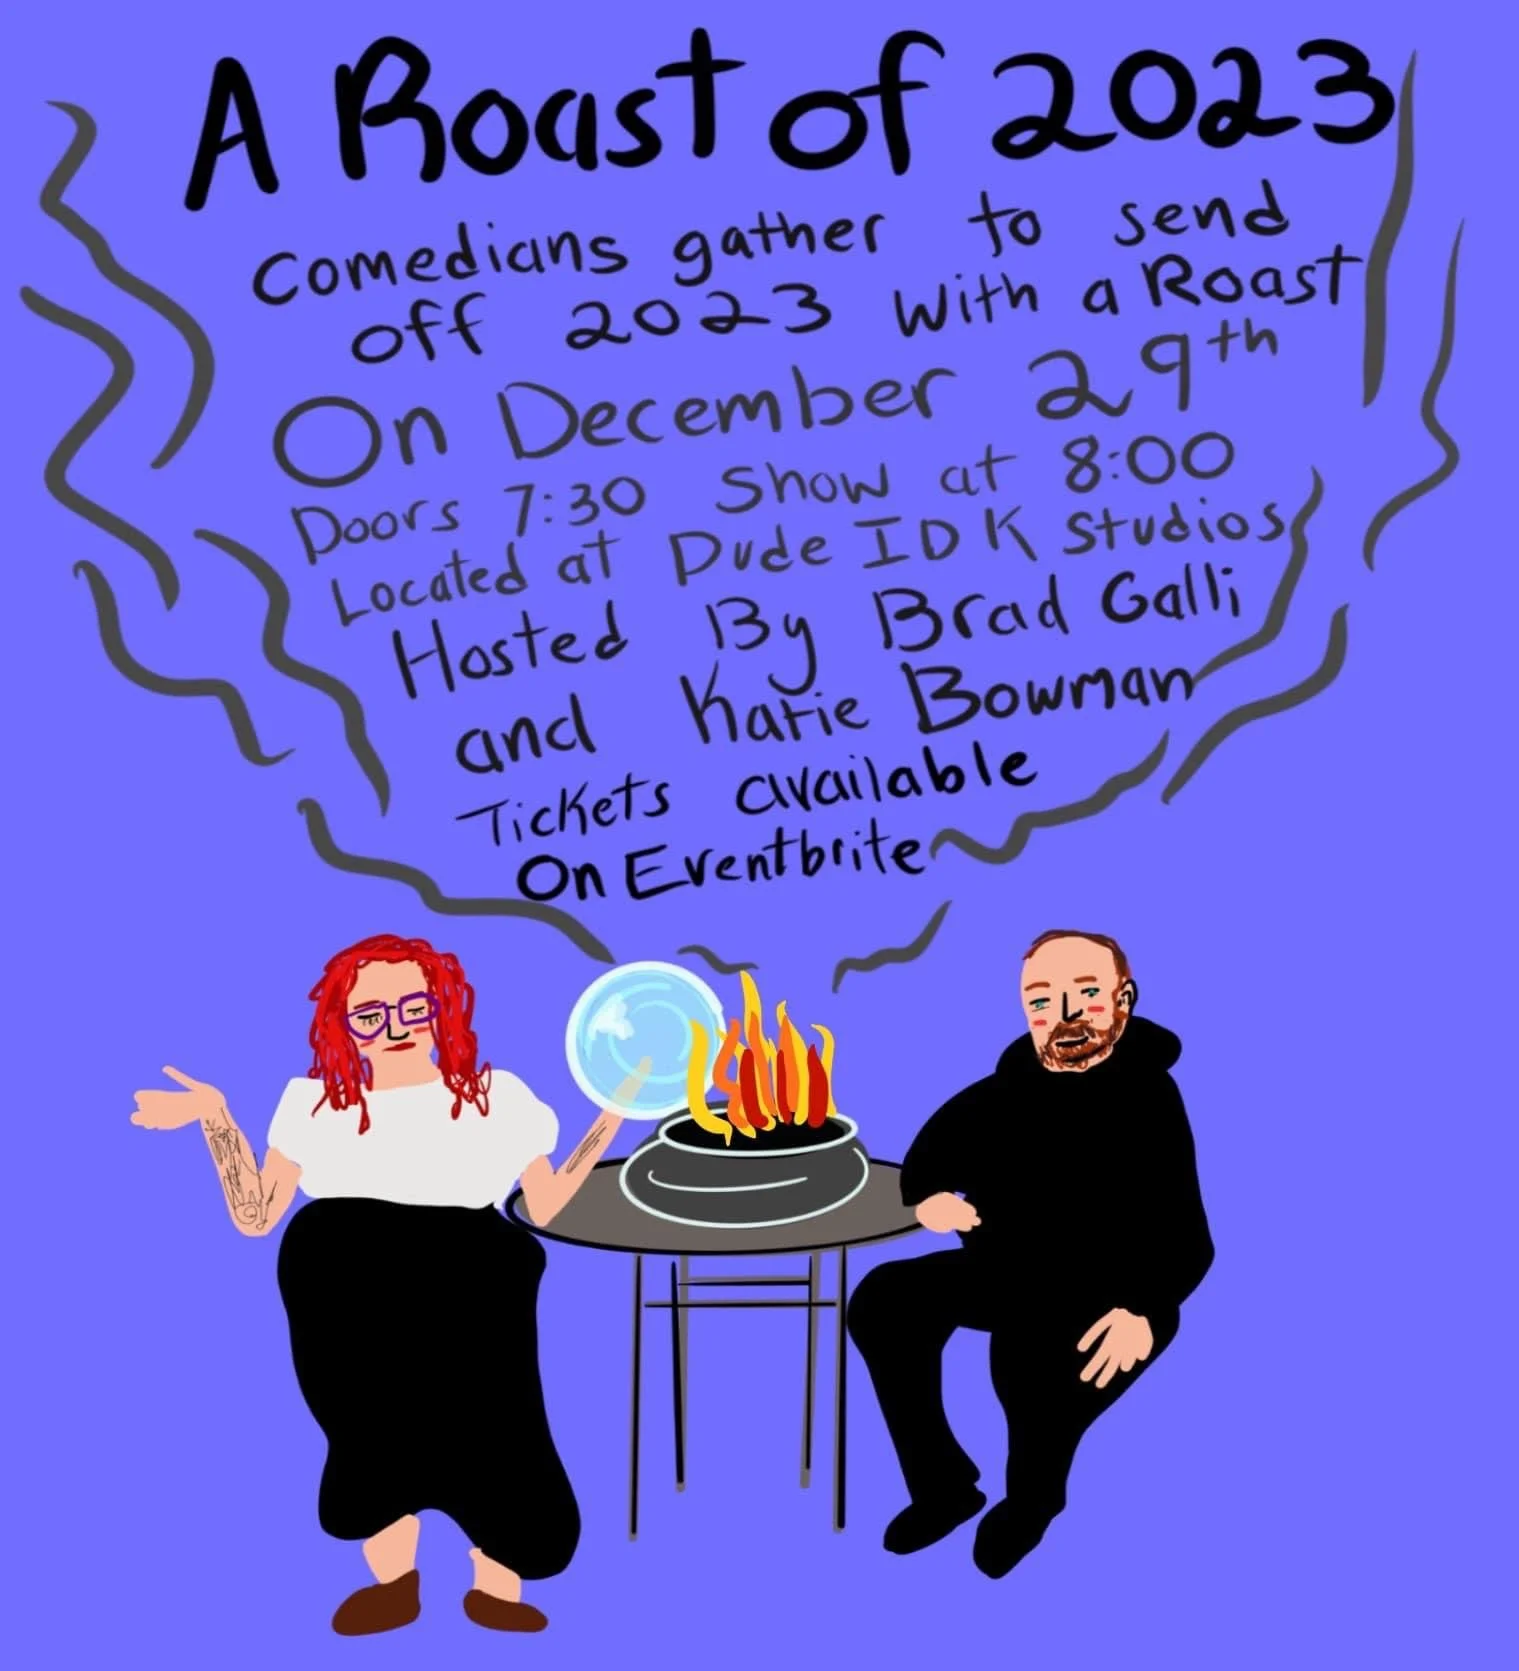 A Roast of 2023
Comedians gather to send
off 2023 with a Roast
On December 29th
Doors 7:30 Show at 8:00
Located at Dude IDK Studios
Hosted By Brad Galli
and Katie Bowman
Tickets available
On Eventbrite